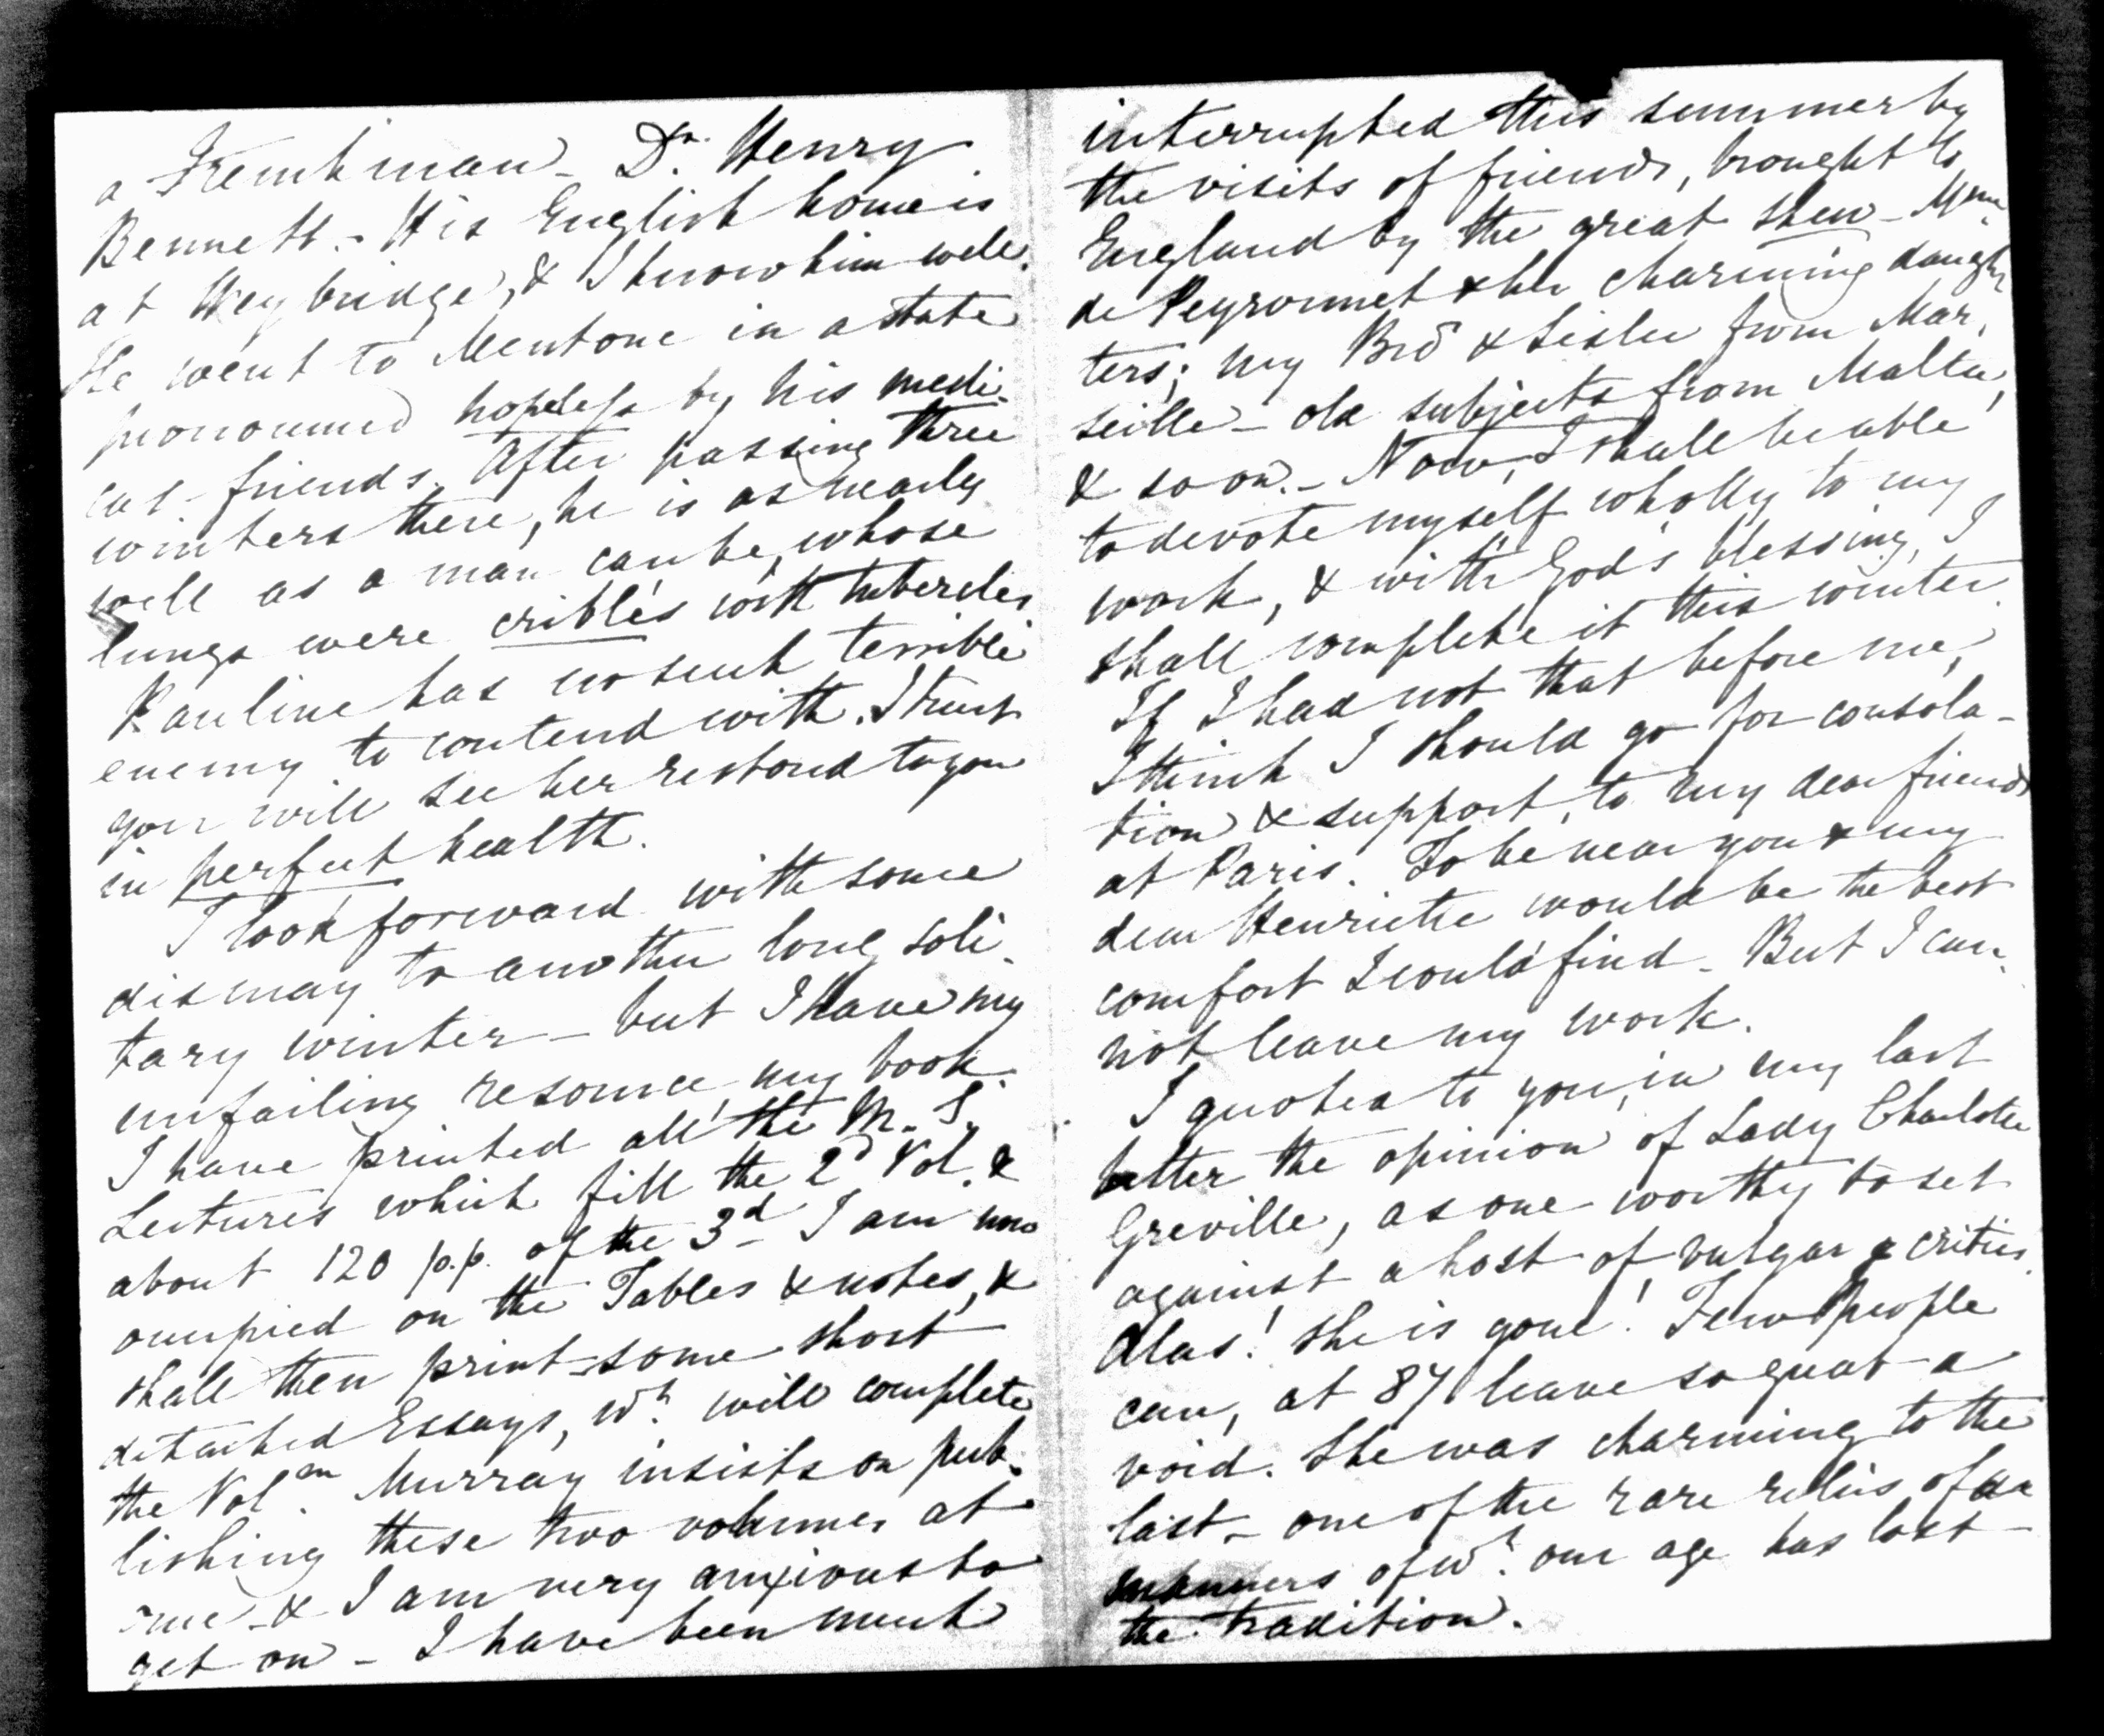 a Frenchman – Dr. Henry
Bennett – His English home is
at Weybridge, & I know him well.
He went to Mentone in a state
pronounced hopeless by his medi-
cal friends. After passing three
winters there, he is as nearly
well as a man can be, whose
lungs were criblés with tubercles
Pauline has no such terrible
enemy to contend with. I trust
you will see her restored to you
in perfect health.
I look forward with some
dismay to another long soli-
tary winter – but I have my
unfailing resource, my book.
I have printed all the M. S.
Lectures which fill the 2d Vol. &
about 120 p.p. of the 3d I am now
occupied on the Tables & notes, &
shall then print some short
detached Essays, wh. will complete
the Volm. Murray insists on pub-
lishing these two volumes at
once – & I am very anxious to
get on – I have been much
interrupted this summer by
the visits of friends, brought to
England by the great shew – Mme
de Peyronnet & her charming daugh-
ters; my Bror & Sister from Mar-
seille – old subjects from Malta,
& so on. – Now, I shall be able
to devote myself wholly to my
work, & with God's blessing, I
shall complete it this winter.
If I had not that before me,
I think I should go for consola-
tion & support, to my dear friends
at Paris. To be near you & my
dear Henriette would be the best
comfort I could find – But I can-
not leave my work.
I quoted to you, in my last
letter the opinion of Lady Charlotte
Greville, as one worthy to set
against a host of vulgar critics.
Alas! she is gone! Few people
can, at 87 leave so great a
void. She was charming to the
last – one of the rare relics of
manners of wh. our age has lost
the tradition.